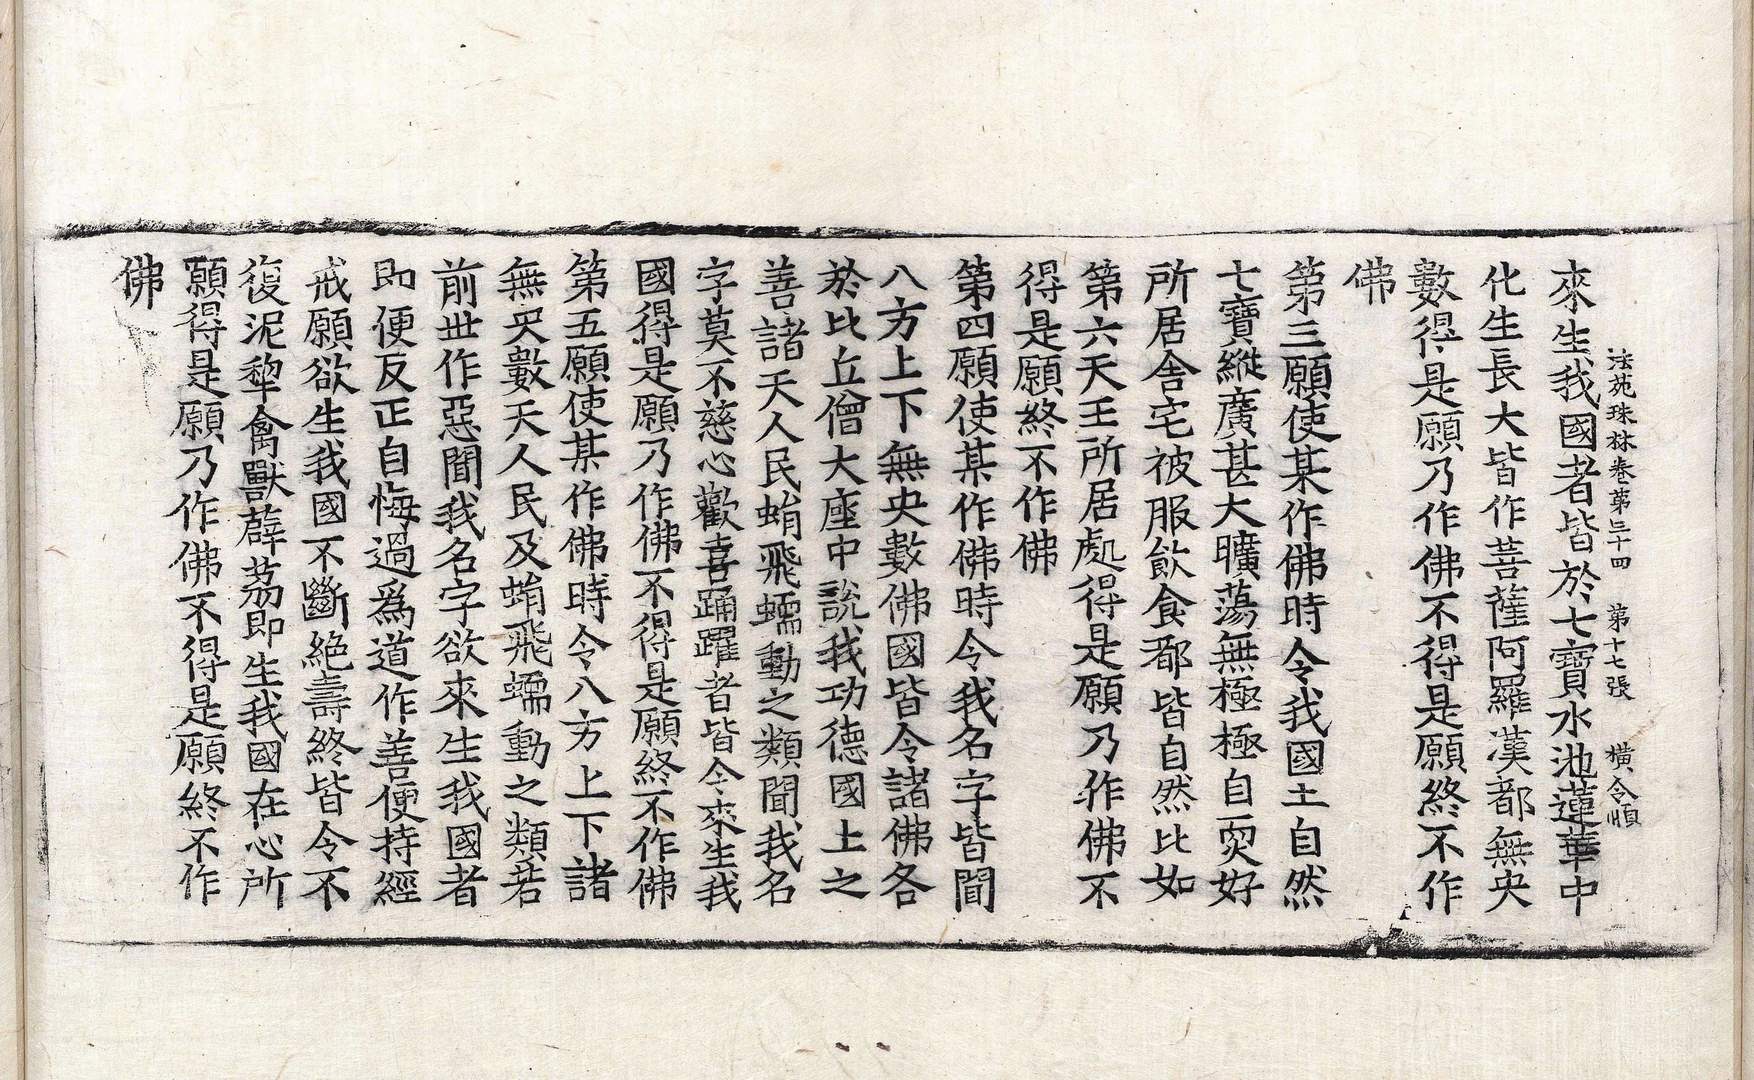 法苑珠林卷第三十四 第十七張 橫令順
來生我國者皆於七寶水池蓮華中
化生長大皆作菩薩阿羅漢都無央
數得是願乃作佛不得是願終不作
佛
第三願使某作佛時令我國土自然
七寶縱廣甚大曠蕩無極極自耎好
所居舍宅被服飲食都皆自然比如
第六天王所居處得是願乃作佛不
得是願終不作佛
第四願使某作佛時令我名字皆聞
八方上下無央數佛國皆令諸佛各
於比丘僧大座中說我功德國土之
善諸天人民蜎飛蠕動之類聞我名
字莫不慈心歡喜踊躍者皆令來生我
國得是願乃作佛不得是願終不作佛
第五願使某作佛時令八方上下諸
無央數天人民及蜎飛蠕動之類若
前世作惡聞我名字欲來生我國者
即便反正自悔過爲道作善便持經
戒願欲生我國不斷絕壽終皆令不
復泥犁禽獸薜荔即生我國在心所
願得是願乃作佛不得是願終不作
佛